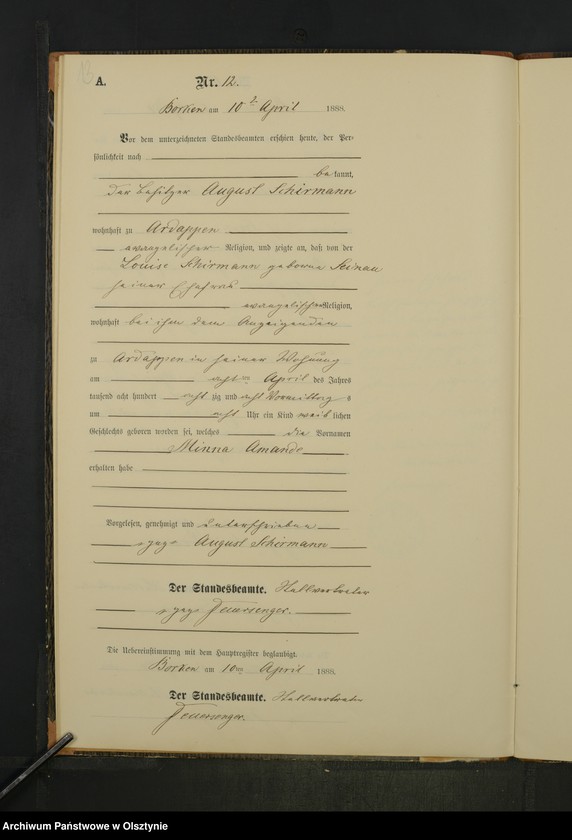 A. Nr. 12.
Borken am 10t April 1888.
Vor dem unterzeichneten Standesbeamten erschien heute, der Per-
sönlichkeit nach
bekannt,
der Besitzer August Schirmann
wohnhaft zu Ardappen
evangelischer Religion, und zeigte an, daß von der
Louise Schirmann geborene
seiner Ehefrau
evangelischer Religion,
wohnhaft bei ihm dem Anzeigenden
zu Ardappen in seiner Wohnung
am achten April des Jahres
tausend acht hundert achtzig und acht Vormittags
um acht Uhr ein Kind weiblichen
Geschlechts geboren worden sei, welches die Vornamen
Minna Amande
erhalten habe
Vorgelesen, genehmigt und unterschrieben
gez. August Schirmann
Der Standesbeamte.
gez.
Die Uebereinstimmung mit dem Hauptregister beglaubigt.
Borken am 10ten April 1888.
Der Standesbeamte.
Archiwum Państwowe w Olsztynie